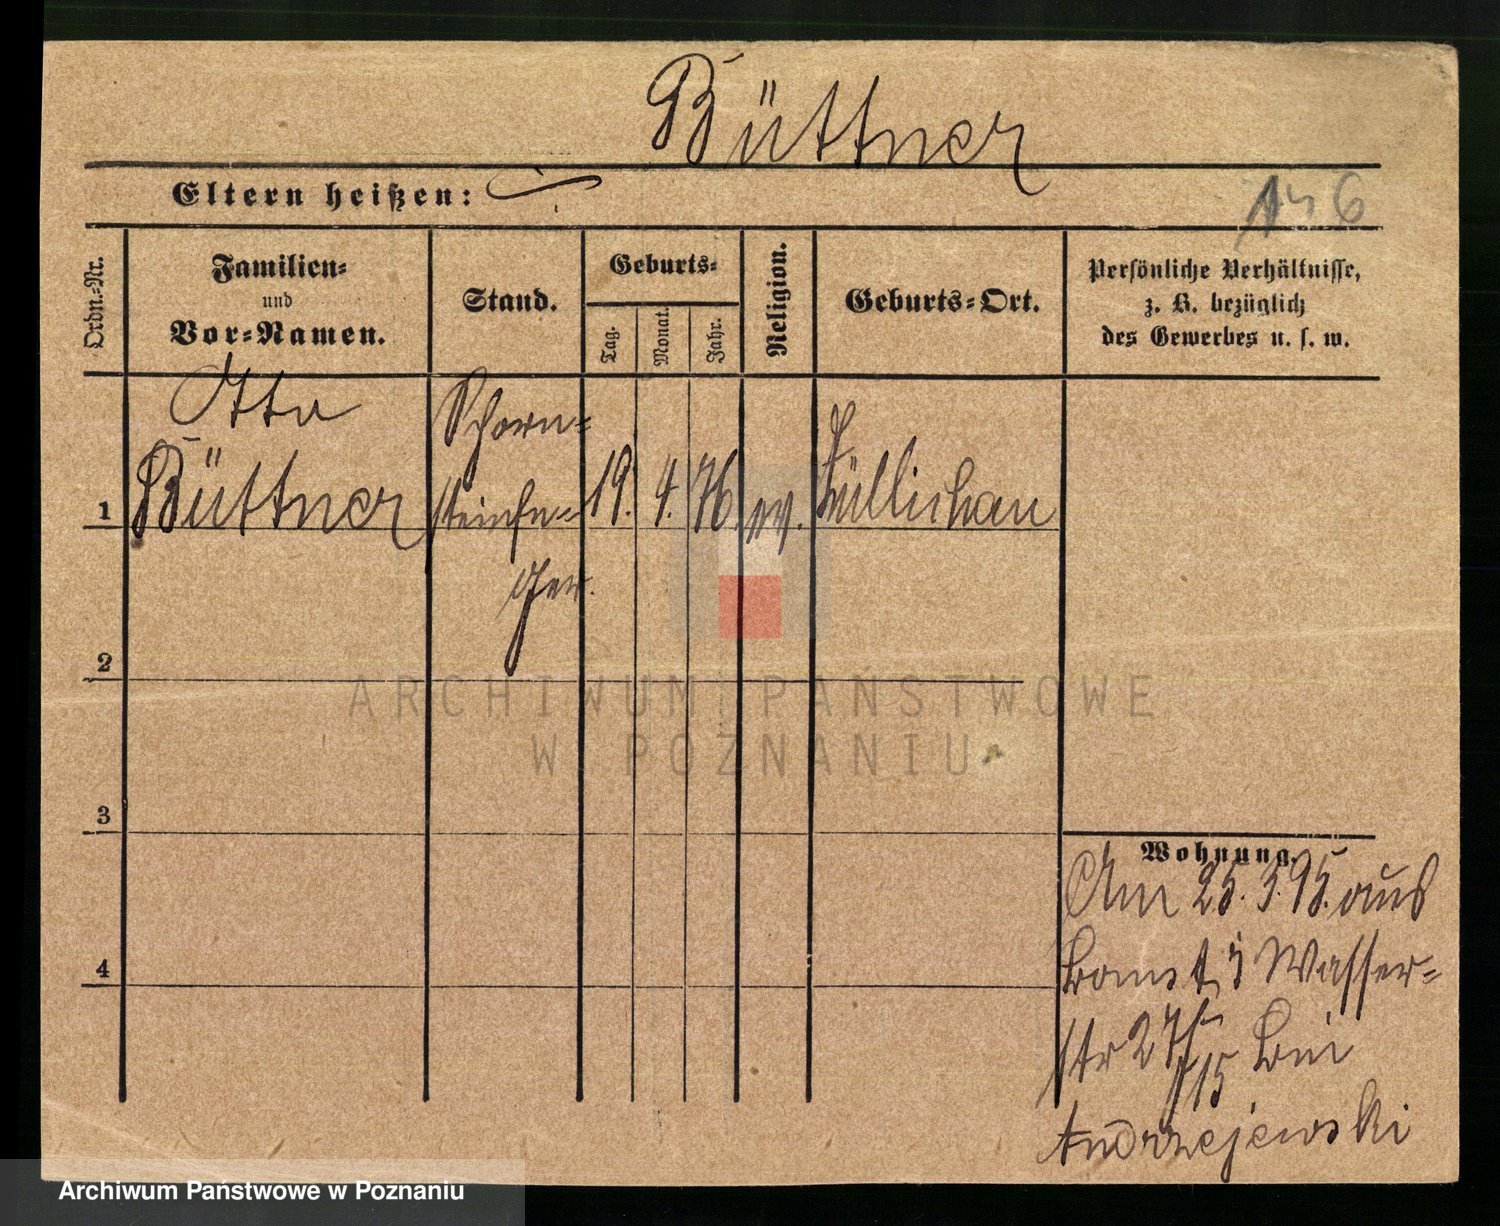 Büttner
Eltern heißen:
Ordn.-Nr.
Familien-
und
Vor-Namen.
Stand.
Geburts-
Tag.
Monat.
Jahr.
Religion.
Geburts-Ort.
Persönliche Verhältnisse,
z. B. bezüglich
des Gewerbes u. s. w.
1
Otto
Büttner
Schorn-
steinfe-
ger.
19.
4.
76.
ev.
Züllichau
2
3
4
Wohnung.
Am 25. 3. 95. aus
Bomst, Wasser-
str 27 bei
Andrzejewski
ARCHIWUM PAŃSTWOWE
W POZNANIU
Archiwum Państwowe w Poznaniu